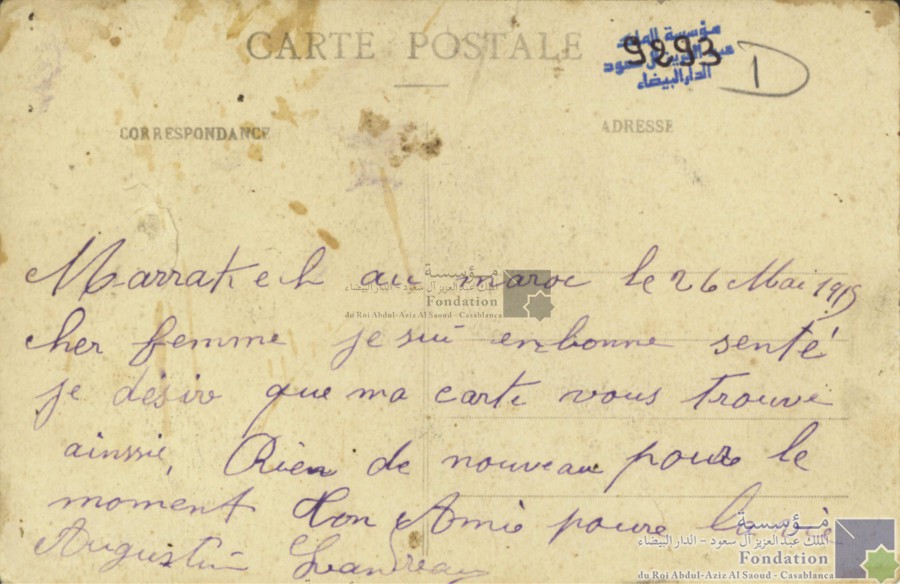 CARTE POSTALE
مؤسسة الملك
عبد العزيز آل سعود
الدار البيضاء
9293
1
CORRESPONDANCE
ADRESSE
Marrakech au maroc le 26 Mai 1915
cher femme je sui en bonne senté
je désire que ma carte vous trouve
ainssie, Rien de nouveau poure le
moment ton Amie poure la vie
Augustin
مؤسسة
الملك عبد العزيز آل سعود - الدار البيضاء
Fondation
du Roi Abdul-Aziz Al Saoud - Casablanca
مؤسسة
الملك عبد العزيز آل سعود - الدار البيضاء
Fondation
du Roi Abdul-Aziz Al Saoud - Casablanca